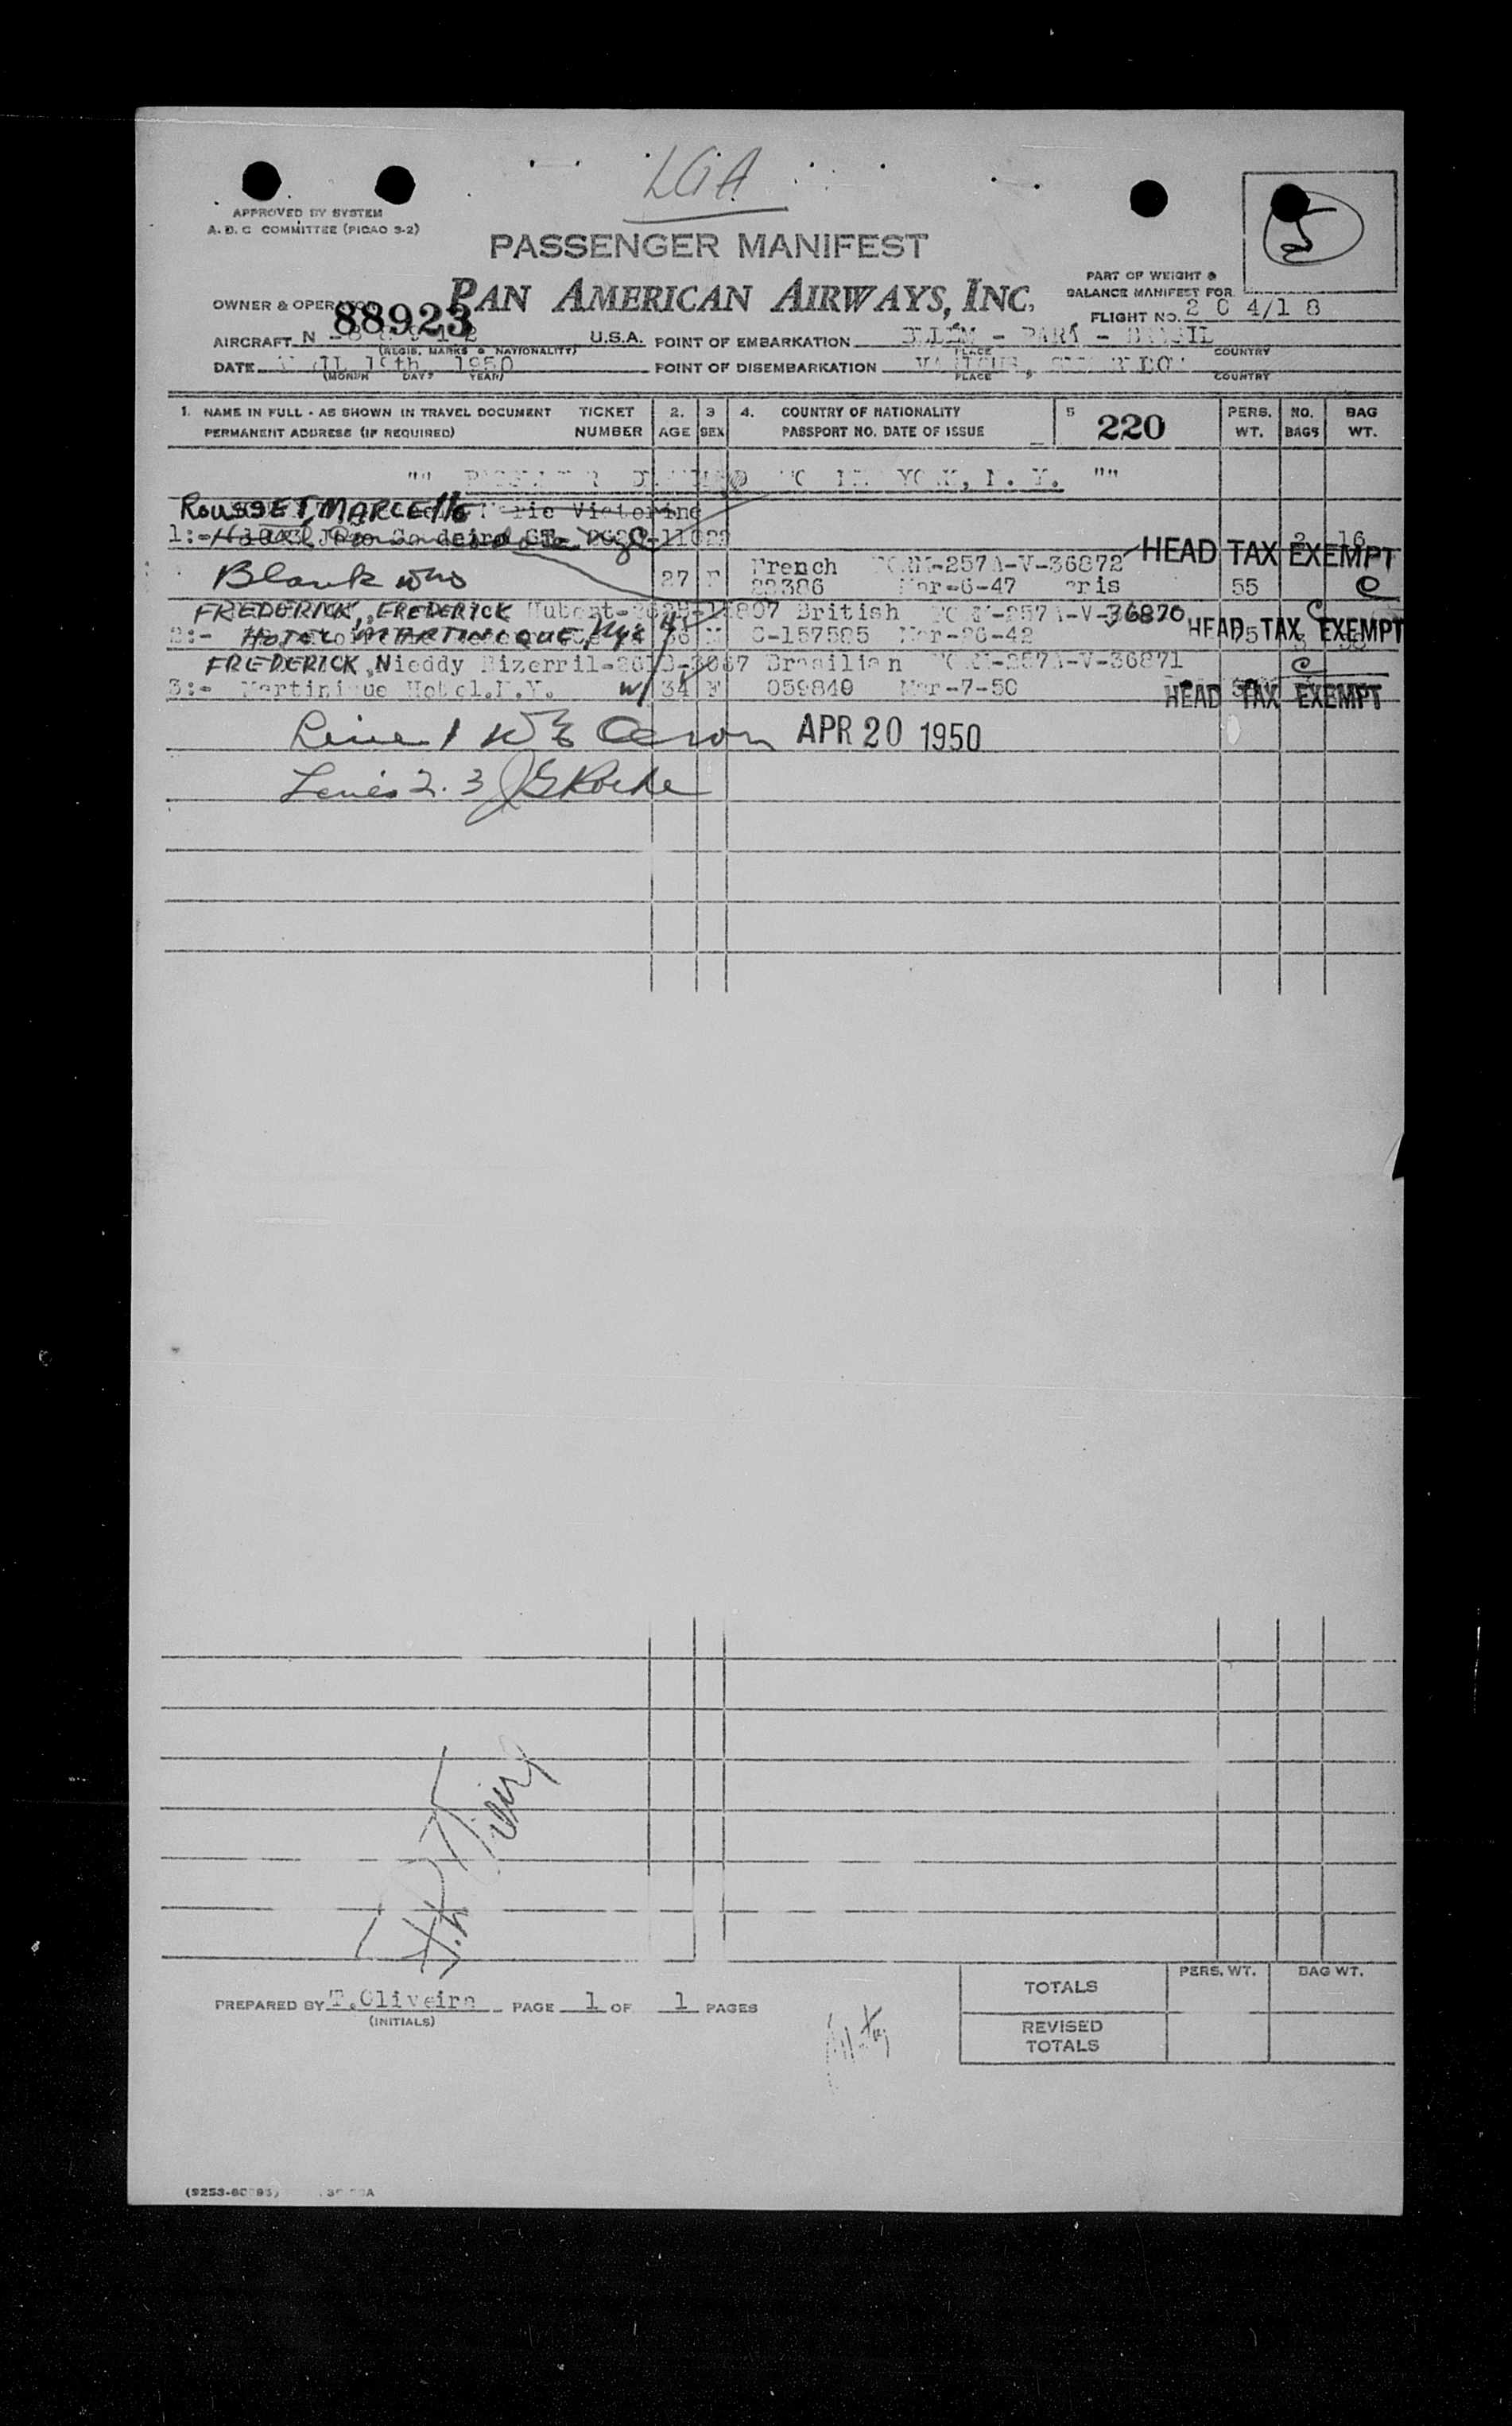 LGA
APPROVED BY SYSTEM
A. D. C COMMITTEE (PICAO 9-2)
PASSENGER MANIFEST
PAN AMERICAN AIRWAYS, INC.
PART OF WEIGHT &
BALANCE MANIFEST FOR
OWNER & OPERATOR
88923
FLIGHT NO. 2 0 4/1 8
AIRCRAFT N - 8 8 9 1 2 U.S.A. POINT OF EMBARKATION BELEM - PARÁ - BRASIL
(REGIS. MARKS & NATIONALITY) PLACE COUNTRY
DATE APRIL 19th 1950 POINT OF DISEMBARKATION
(MONTH DAY, YEAR) PLACE , COUNTRY
1. NAME IN FULL - AS SHOWN IN TRAVEL DOCUMENT TICKET 2. 3 4. COUNTRY OF NATIONALITY 5 220 PERS. NO. BAG
PERMANENT ADDRESS (IF REQUIRED) NUMBER AGE SEX PASSPORT NO. DATE OF ISSUE WT. BAGS WT.
"" TO NEW YORK, N. Y. ""
ROUSSET, MARCELLE Marie Victorine
1:- 2 16
French FORM-257A-V-36872 HEAD TAX EXEMPT
Blank 27 F 22386 Mar-6-47 Paris 55 C
FREDERICK, FREDERICK Hubert- British FORM-257A-V-36870 C
2:- HOTEL MARTINIQUE, NYC 36 M C-157585 Mar-26-42 HEAD TAX EXEMPT
FREDERICK, Nieddy Bizerril- Brasilian FORM-257A-V-36871 C
3:- Martinique Hotel.N.Y. 34 F 059840 Mar-7-50 HEAD TAX EXEMPT
Line 1 APR 20 1950
Lines 2. 3
PREPARED BY T.Oliveira PAGE 1 OF 1 PAGES
(INITIALS)
TOTALS PERS. WT. BAG WT.
REVISED
TOTALS